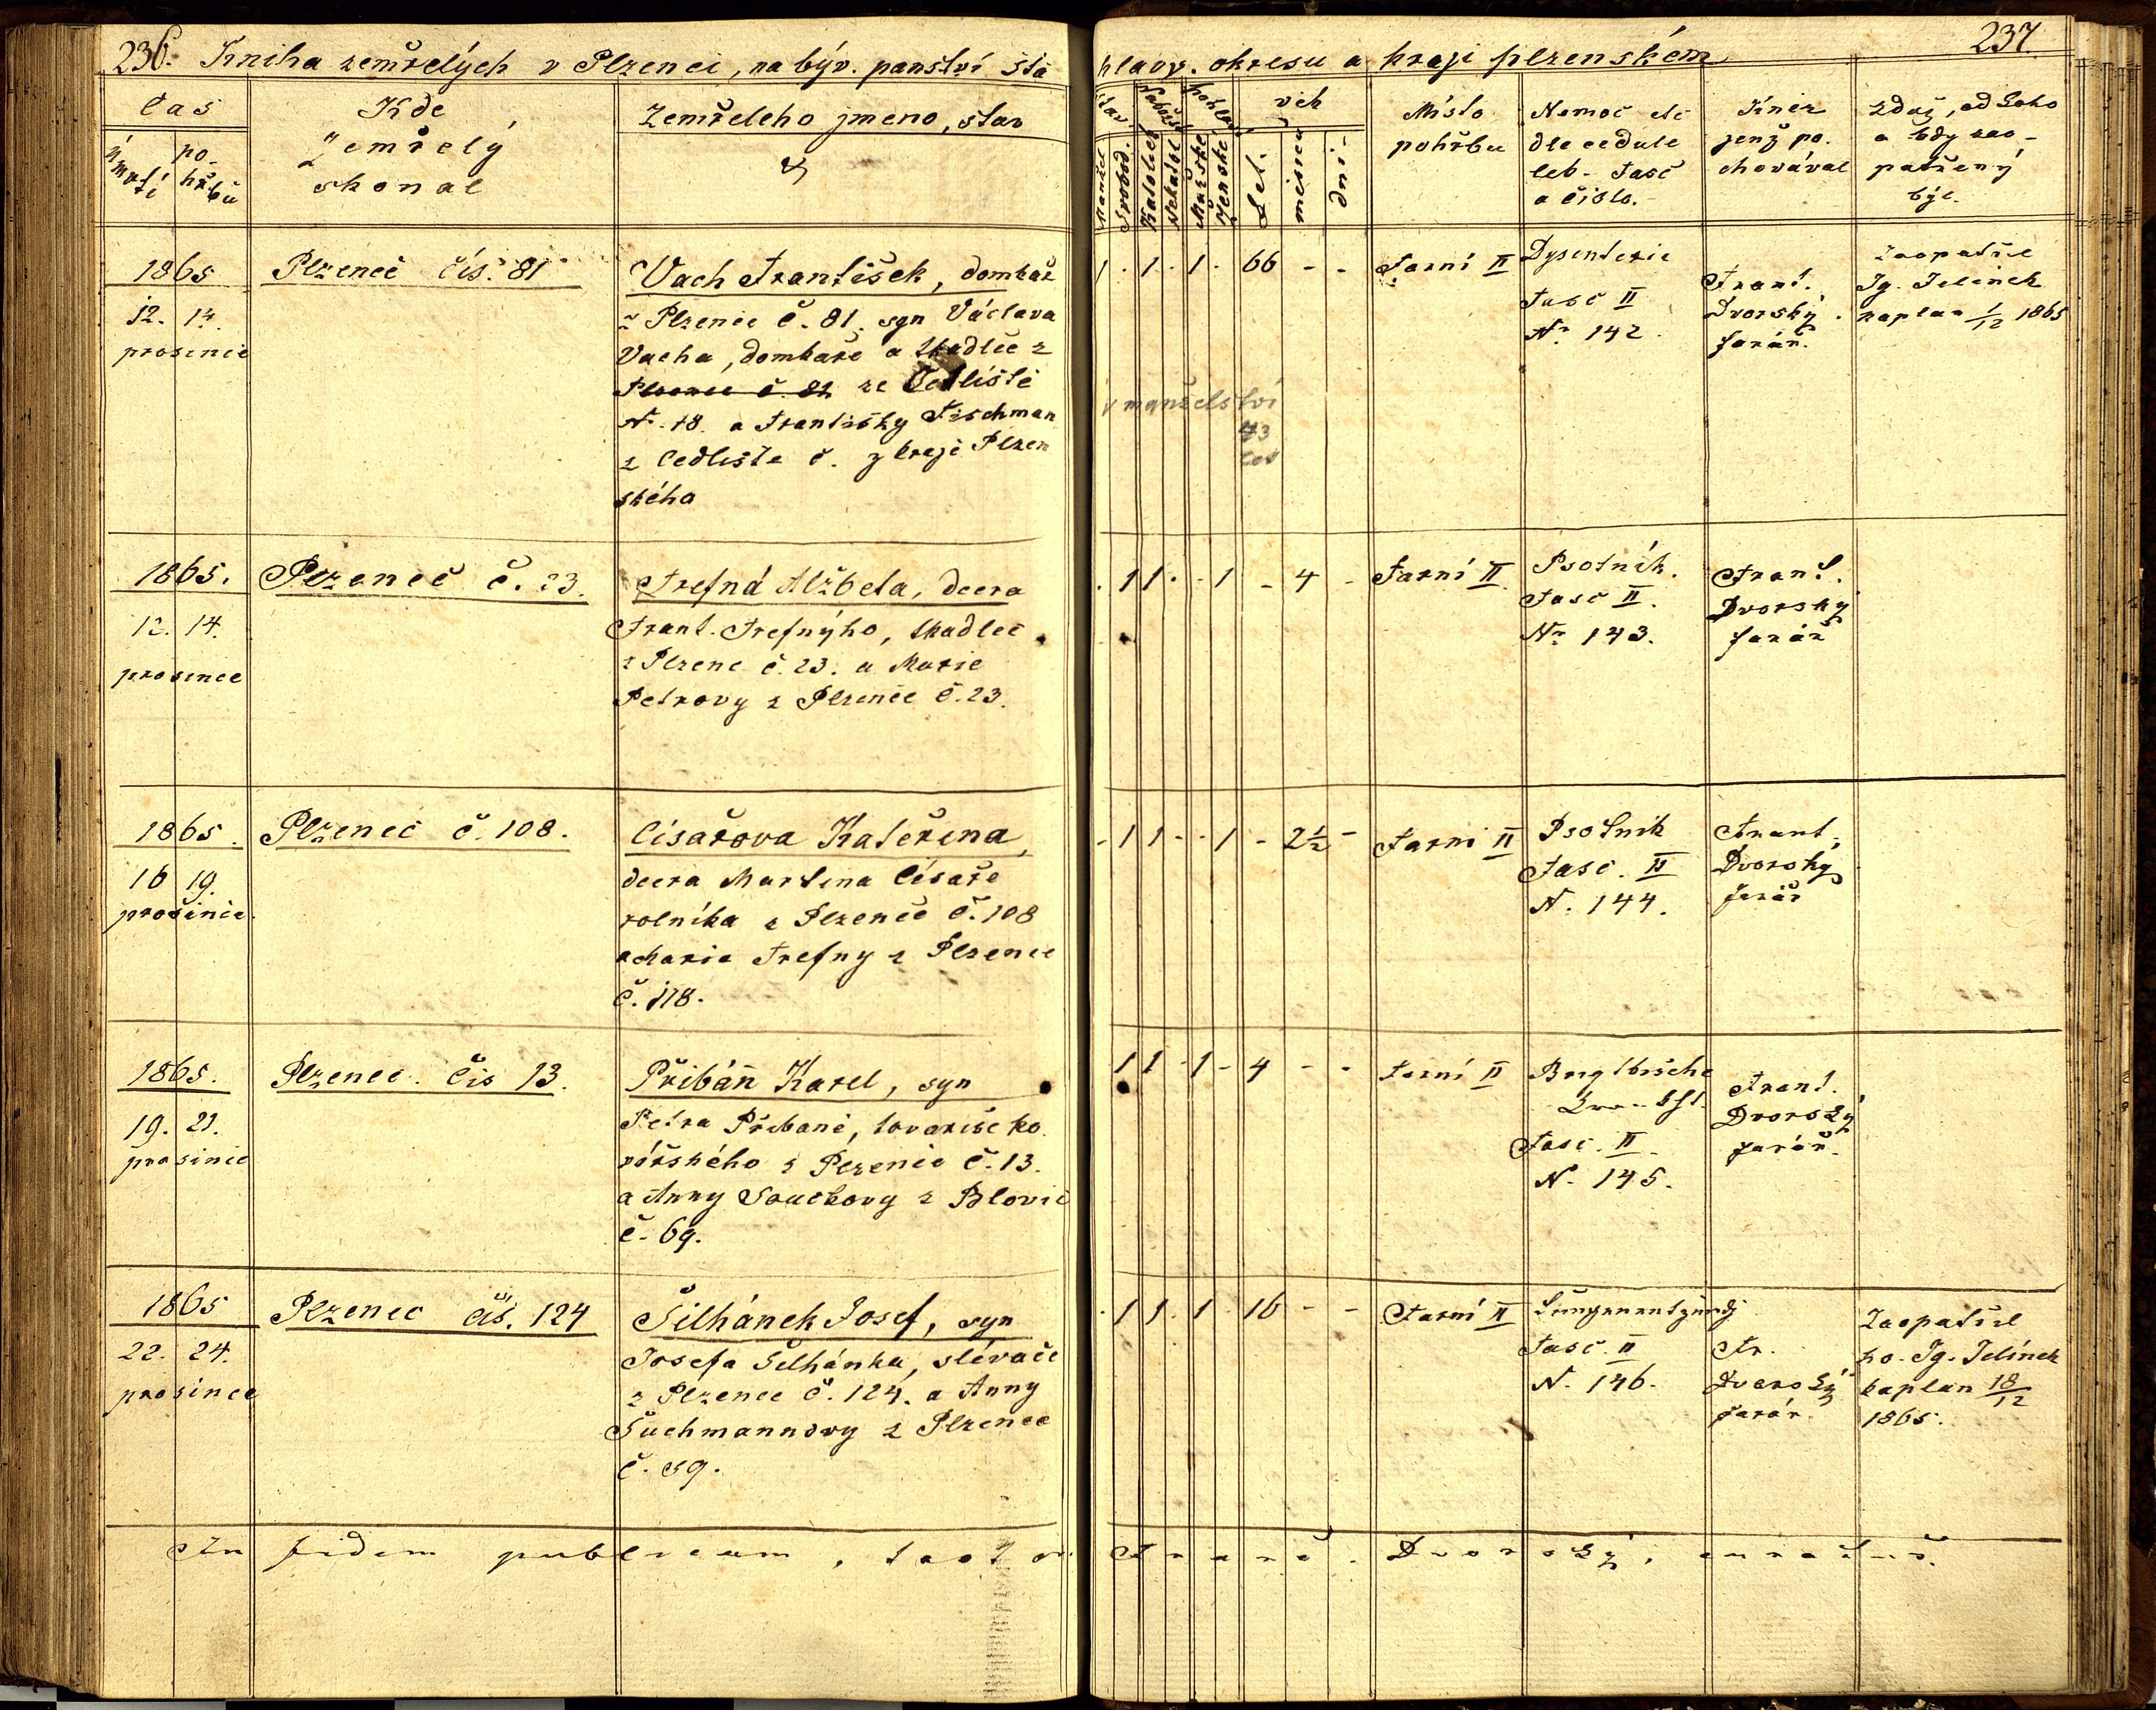 236. Kniha zemřelých v Plzenci, na býv. panství šťa
čas
úmrtí
po-
hřbu
Kde
Zemřelý
skonal
Zemřelého jmeno, stav
&
1865
12. 14.
prosince
Plzenec čís. 81
Vach František, domkář
z Plzence č. 81. syn Václava
Vacha, domkáře a tkadlce z
Plzence č. 81 ze Cedliště
N. 18. a Františky Fischman
z Cedliště č. z kraje Plzen
ského
1865.
12. 14.
prosince
Plzenec č. 23.
Trefná Alžběta, dcera
Frant. Trefnýho, tkadlce
z Plzenc č. 23. a Marie
Petrovy z Plzence č. 23.
1865.
16 19.
prosince.
Plzenec č. 108.
Císařova Kateřina,
dcera Martina Císaře
rolníka z Plzence č. 108
a Marie Trefny z Plzence
č. 118.
1865.
19. 21.
prosince
Plzenec. Čís 13.
Přibáň Karel, syn
Petra Přibaně, tovaryše ko
vářského z Plzence č. 13.
a Anny Součkovy z Blovic
č. 69.
1865
22. 24.
prosince
Plzenec čís. 124
Šilhánek Josef, syn
Josefa Šilhánka, slévače
z Plzence č. 124. a Anny
Suchmannovy z Plzence
č. 59.
In fidem publicam, test
237
hlavs. okresu a kraji plzenském
stav
Manžel
Svobod.
Katolick
Nekatol
pohlaví
Mužské
Ženské
věk
Let.
měsíců
dní-
Místo
pohřbu
Nemoc etc
dle cedule
leb- Fasc
a číslo.
Kněz
jenž po.
chovával
Zdaž, od koho
a kdy zao-
patřený
býl.
1 . 1 . 1 . 66 - - Farní II
Dysenterie
Fasc II
Nr 142.
Frant.
Dvorský
farář.
Zaopatřil
Ig. Jelínek
kaplan 1/12 1865
v manželství
43
let
. 1 1 . . 1 - 4 - Farní II
Psotník.
Fasc II.
Nr 143.
Frant.
Dvorský
farář
- 1 1 - - 1 - 2½ - Farní II
Psotník
Fasc. II
N. 144.
Frant.
Dvorský
farář
1 1 - 1 - 4 - - Farní II
Fasc. II.
N. 145.
Frant.
Dvorský
farář.
. 1 1 . 1 . 16 - - Farní II
Lungenentzündg
Fasc. II
N. 146.
Fr.
Dvorský
farář.
Zaopatřil
ho. Ig. Jelínek
kaplan 18/12
1865.
Franc. Dvorský, curatus.